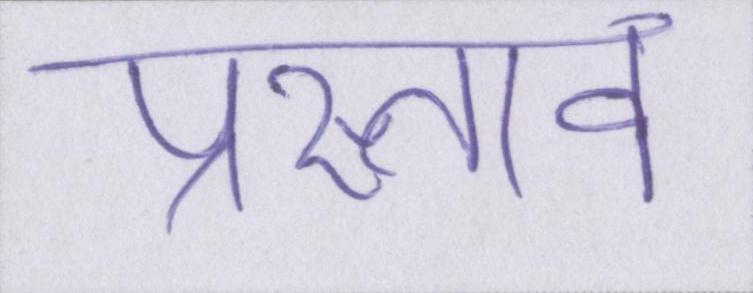 प्रस्ताव